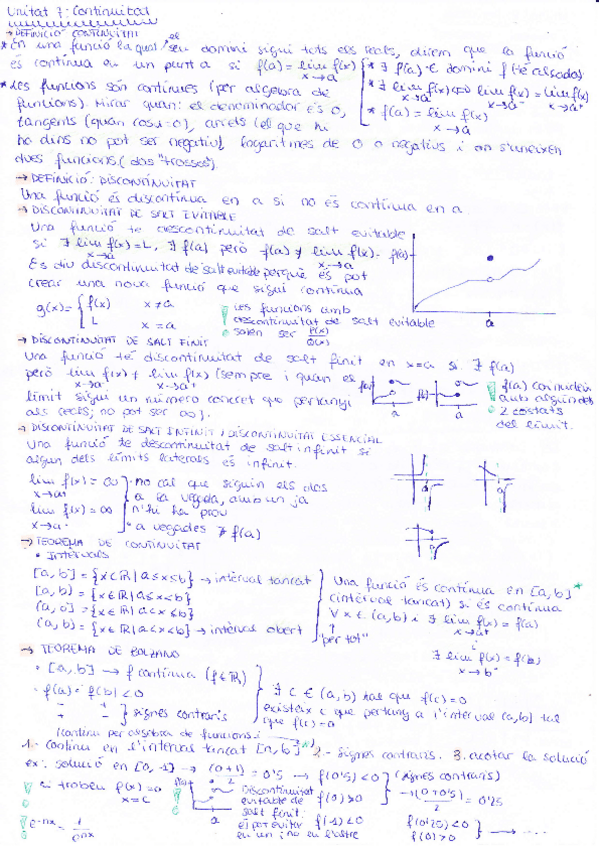 Unitat 7: Continuitat
→ DEFINICIÓ CONTINUÏTAT
* En una funció la qual el seu domini sigui tots els reals, direm que la funció
és contínua en un punt a si f(a) = lim f(x)
x→a
* ∃ f(a) · ∈ domini f (té alçada)
* ∃ lim f(x) ⇔ lim f(x) = lim f(x)
x→a x→a⁻ x→a⁺
* f(a) = lim f(x)
x→a
* Les funcions són contínues (per àlgebra de
funcions). Mirar quan: el denominador és 0,
tangents (quan cosx=0), arrels (el que hi
ha dins no pot ser negatiu), logaritmes de 0 o negatius i on s'uneixen
dues funcions (dos "trossos").
→ DEFINICIÓ: DISCONTINUÏTAT
Una funció és discontínua en a si no és contínua en a.
→ DISCONTINUÏTAT DE SALT EVITABLE
Una funció té discontinuïtat de salt evitable
si ∃ lim f(x) = L, ∃ f(a) però f(a) ≠ lim f(x).
x→a x→a
Es diu discontinuïtat de salt evitable perquè és pot
crear una nova funció que sigui contínua
g(x) = { f(x) x ≠ a
L x = a
Les funcions amb
discontinuïtat de salt evitable
solen ser P(x)/Q(x)
f(a)
a
→ DISCONTINUÏTAT DE SALT FINIT
Una funció té discontinuïtat de salt finit en x=a si ∃ f(a)
però lim f(x) ≠ lim f(x) (sempre i quan es
x→a⁻ x→a⁺
límit sigui un número concret que pertanyi
als reals; no pot ser ∞).
f(a) a f(a) a
f(a) coincideix
amb algun dels
2 costats
del límit.
→ DISCONTINUÏTAT DE SALT INFINIT / DISCONTINUÏTAT ESSENCIAL
Una funció té discontinuïtat de salt infinit si
algun dels límits laterals és infinit.
lim f(x) = ∞
x→a⁺
lim f(x) = ∞
x→a⁻
· no cal que siguin els dos
a la vegada, amb un ja
n'hi ha prou
· a vegades ∄ f(a)
→ TEOREMA DE CONTINUÏTAT
• INTERVALS
[a,b] = {x∈ℝ | a≤x≤b} → interval tancat
[a,b) = {x∈ℝ | a≤x<b}
(a,b] = {x∈ℝ | a<x≤b}
(a,b) = {x∈ℝ | a<x<b} → interval obert
Una funció és contínua en [a,b] *
(interval tancat) si és contínua
∀ x ∈ (a,b) i ∃ lim f(x) = f(a)
x→a⁺
"per tot"
∃ lim f(x) = f(b)
x→b⁻
→ TEOREMA DE BOLZANO
• [a,b] → f contínua (f∈ℝ)
• f(a) · f(b) < 0
- +
+ -
} signes contraris
∃ c ∈ (a,b) tal que f(c) = 0
existeix c que pertany a l'interval (a,b) tal
que f(c) = 0
(contínua per àlgebra de funcions i
1.- contínua en l'interval tancat [a,b] 2.- signes contraris. 3. acotar la solució
ex: solució en [0,-1] → (0+1)/2 = 0'5 → f(0'5)<0 (signes contraris)
si trobem f(x) = 0
x = c
f(a)
a
Discontinuïtat
evitable de
salt finit:
es pot evitar
en un i no en l'altre
f(0)>0
f(-1)<0
-1(0+0'5)/2 = 0'25
f(0'25)<0
f(0)>0
} → ....
e^-nx = 1/e^nx